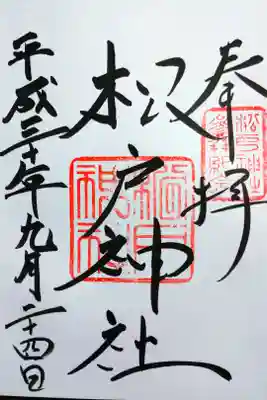 奉拝
松戸神社
平成三十年九月二十四日